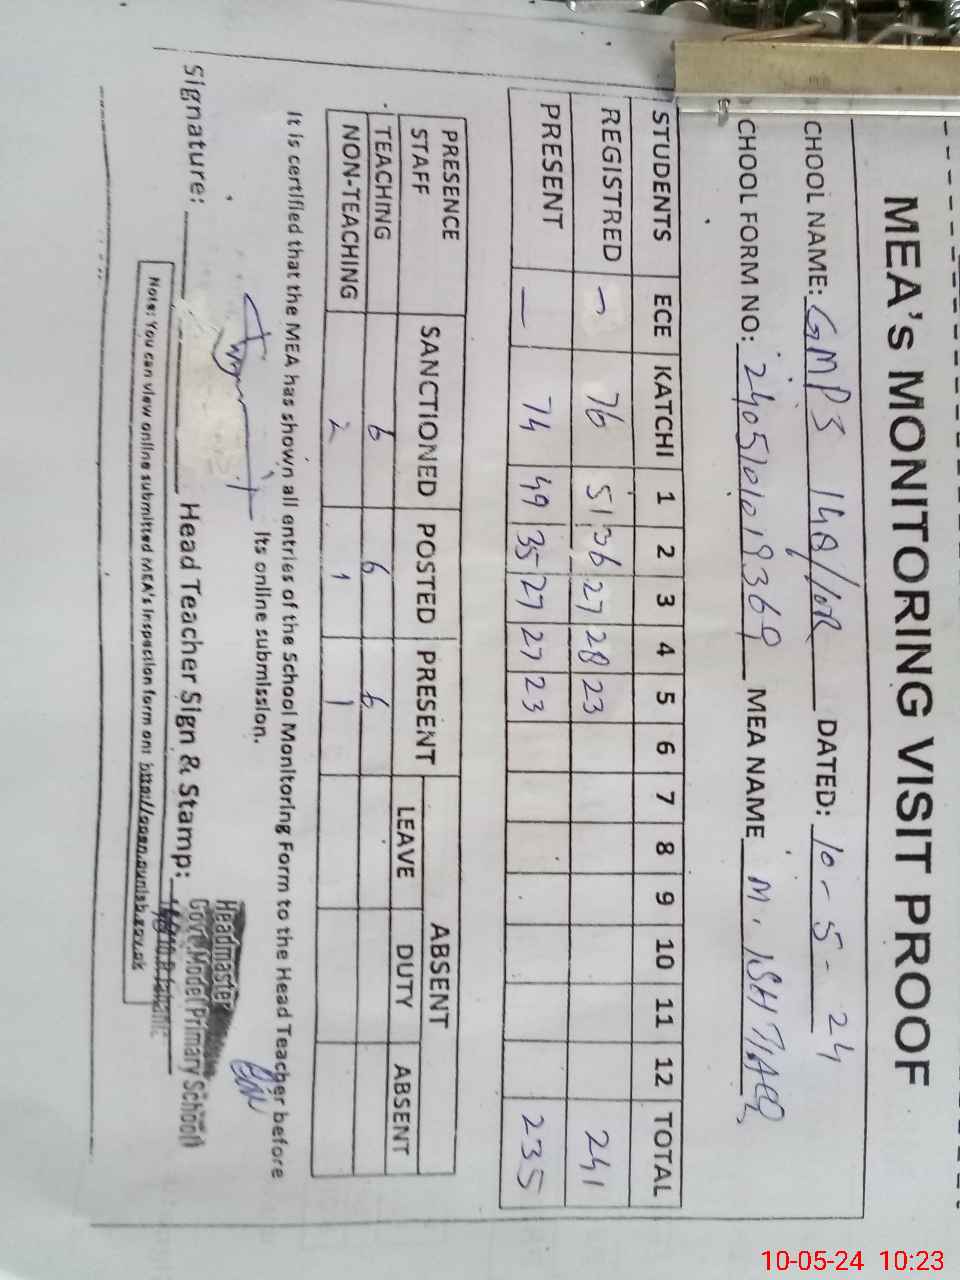 MEA's MONITORING VISIT PROOF
CHOOL NAME: GMPS 148/10R DATED: 10-5-24
CHOOL FORM NO: 2405101019369 MEA NAME M. ISHTIAQ
STUDENTS ECE KATCHI 1 2 3 4 5 6 7 8 9 10 11 12 TOTAL
REGISTRED - 76 51 36 27 28 23 241
PRESENT - 74 49 35 27 27 23 235
PRESENCE STAFF SANCTIONED POSTED PRESENT ABSENT
LEAVE DUTY ABSENT
TEACHING 6 6 6
NON-TEACHING 2 1 1
It is certified that the MEA has shown all entries of the School Monitoring Form to the Head Teacher before
its online submission.
Signature: Head Teacher Sign & Stamp:
Headmaster
Govt. Model Primary School
Note: You can view online submitted MEA's inspection form on: http://open.punjab.gov.pk
10-05-24 10:23